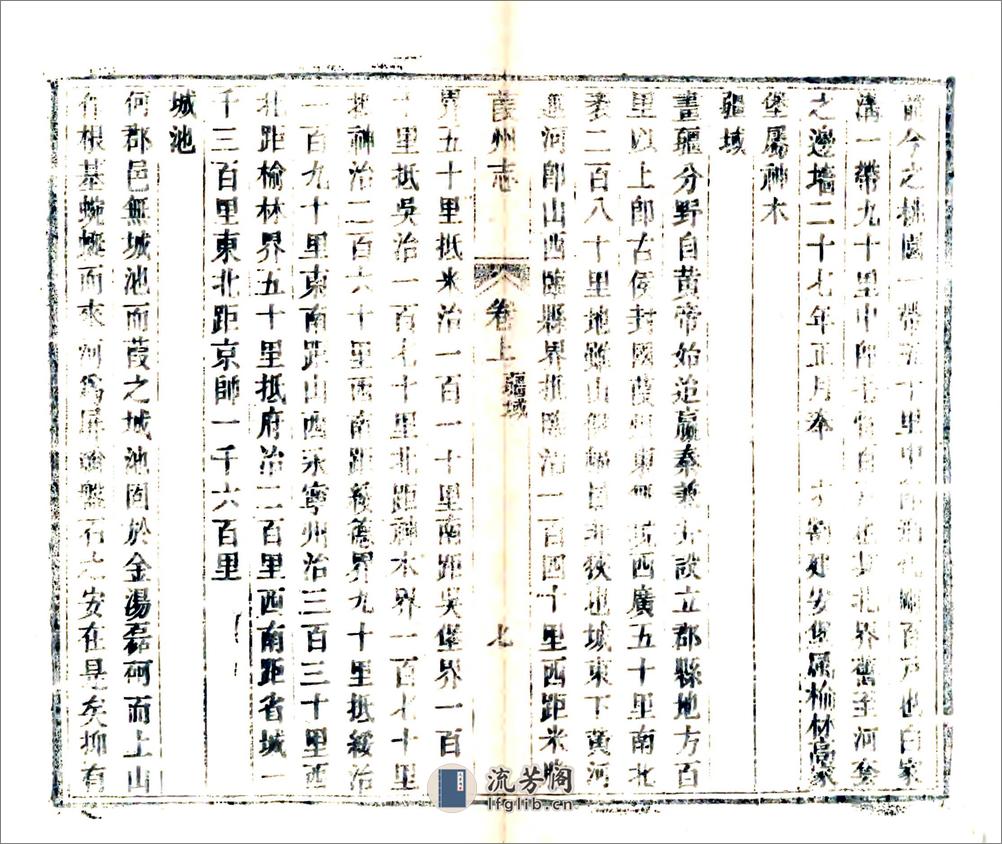 前今之桃園一帶五十里中
溝一帶九十里中
北界舊至河套
之邊墻二十七年正月奉
屬榆林高家
堡屬神木
疆域
畫疆分野自黃帝始迨嬴秦兼
設立郡縣地方百
里以上即古侯封國葭州東
西廣五十里南北
袤二百八十里地雖山
城東下黃河
逾河即山西臨縣界抵臨治一百四十里西距米脂
葭州志
卷上
疆域
七
界五十里抵米治一百一十里南距吳堡界一百
十里抵吳治一百七十里北距神木界一百七十里
抵神治二百六十里西南距綏德界九十里抵綏治
一百九十里東南距山西永寧州治三百三十里西
北距榆林界五十里抵府治二百里西南距省城一
千三百里東北距京師一千六百里
城池
何郡邑無城池而葭之城池固於金湯磊砢而上山
有根基蜿蜒而來河為屏
盤石之安在是矣抑有
流芳阁
lfglib.cn